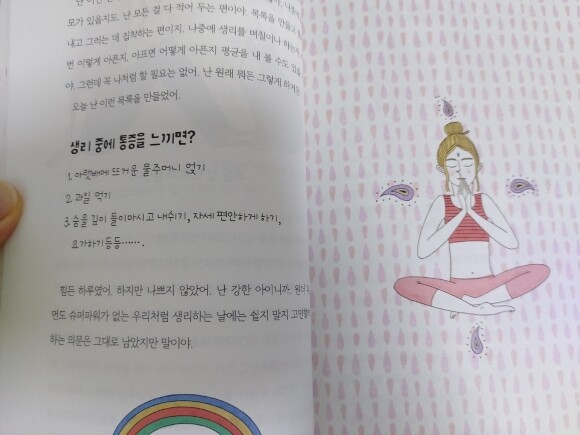 모가 있을지도. 난 모든 걸 다 적어 두는 편이야. 목록을 만들고
내고 그러는 데 집착하는 편이지. 나중에 생리를 며칠이나 하는지,
번 이렇게 아픈지, 아프면 어떻게 아픈지 평균을 내 볼 수도 있을
야. 그런데 꼭 나처럼 할 필요는 없어. 난 원래 뭐든 그렇게 하거든.
오늘 난 이런 목록을 만들었어.
생리 중에 통증을 느끼면?
1. 아랫배에 뜨거운 물주머니 얹기
2. 과일 먹기
3. 숨을 깊이 들이마시고 내쉬기, 자세 편안하게 하기,
요가하기 등등…….
힘든 하루였어. 하지만 나쁘지 않았어. 난 강한 아이니까.
먼도 슈퍼파워가 없는 우리처럼 생리하는 날에는 쉴지 말지 고민할
하는 의문은 그대로 남았지만 말이야.